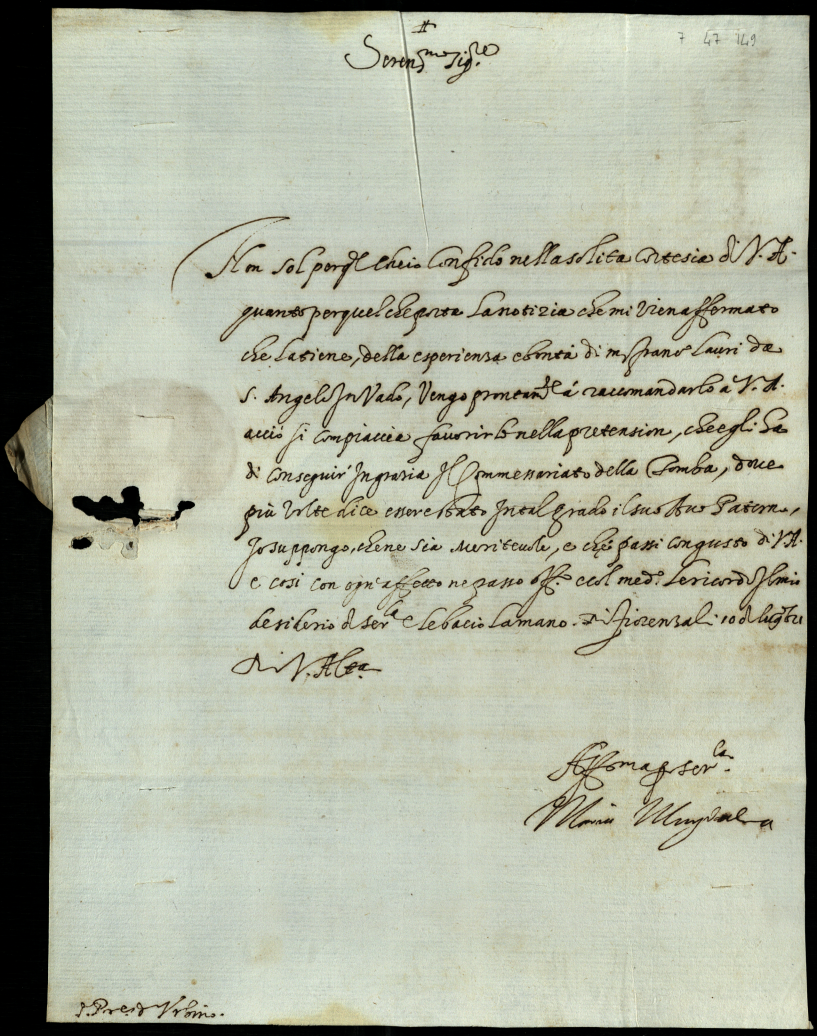 7 47 149
Seren.mo Sig.re
Non sol perq.l ch'eio Confido nella solita Cortesia di V. A.
quanto perquel che porta La notizia che mi vien affermato
che La tiene, della esperienza e bontà di m. Fran.o Lauri da
S. Angelo In Vado, Vengo prontam.te à raccomandarlo à V. A.
acciò si compiaccia favorirlo nella pretension, che egli ha
di conseguir' In grazia Il Commessariato della Tomba, dove
più volte dice essere stato In tal grado il suo Avo Paterno,
Io suppongo, che ne sia Meriteuole, e che passi con gusto di V. A.
e così con ogni affetto ne passo off.o e col med.o Le ricordo Il mio
desiderio di ser.la e le bacio La mano. Di fiorenza li 10 di lug.o 1621
Di V. Alt.a
Aff.ma per ser.la
Maria Magdalena
S. Pre.s d'Urbino.